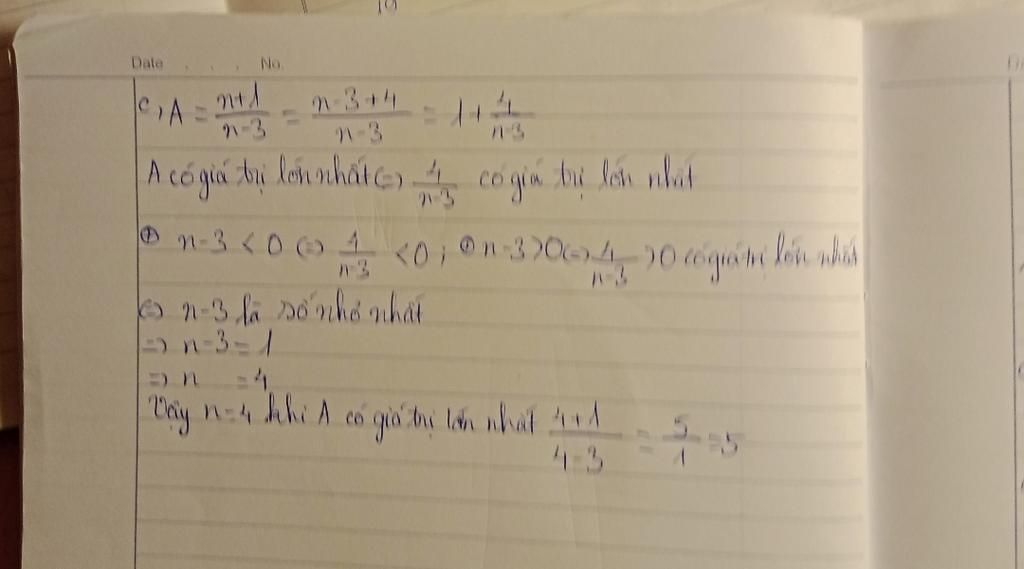 19
Date . . . No.
c, A = \frac{n+1}{n-3} = \frac{n-3+4}{n-3} = 1 + \frac{4}{n-3}
A có giá trị lớn nhất (=) \frac{4}{n-3} có giá trị lớn nhất
⊕ n-3 < 0 (=) \frac{4}{n-3} < 0 ; ⊕ n-3 > 0 (=) \frac{4}{n-3} > 0 có giá trị lớn nhất
(=) n-3 là số nhỏ nhất
=> n-3 = 1
=> n = 4
Vậy n = 4 khi A có giá trị lớn nhất \frac{4+1}{4-3} = \frac{5}{1} = 5